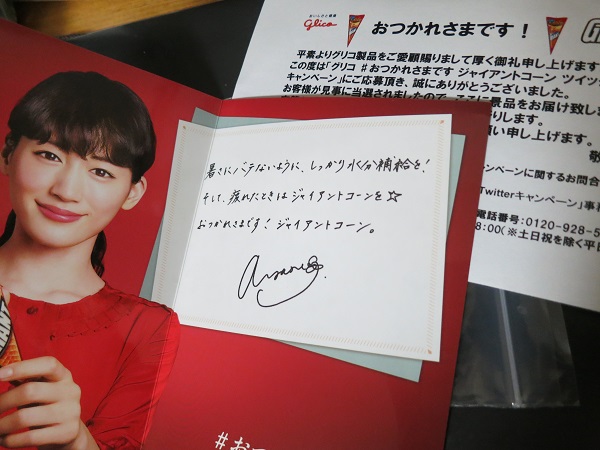 おいしさと健康
Glico
おつかれさまです！
平素よりグリコ製品をご愛顧賜りまして厚く御礼申し上げます
この度は「グリコ #おつかれさまです ジャイアントコーン ツイッ
キャンペーン」にご応募頂き、誠にありがとうございました。
お客様が見事に当選されましたので、ここに景品をお届け致し
願い申し上げます。
敬
ンペーンに関するお問合
Twitterキャンペーン」事
電話番号：0120-928-5
8:00（※土日祝を除く平日
暑さにバテないように、しっかり水分補給を！
そして、疲れたときはジャイアントコーンを☆
おつかれさまです！ジャイアントコーン。
ANT
#おつ